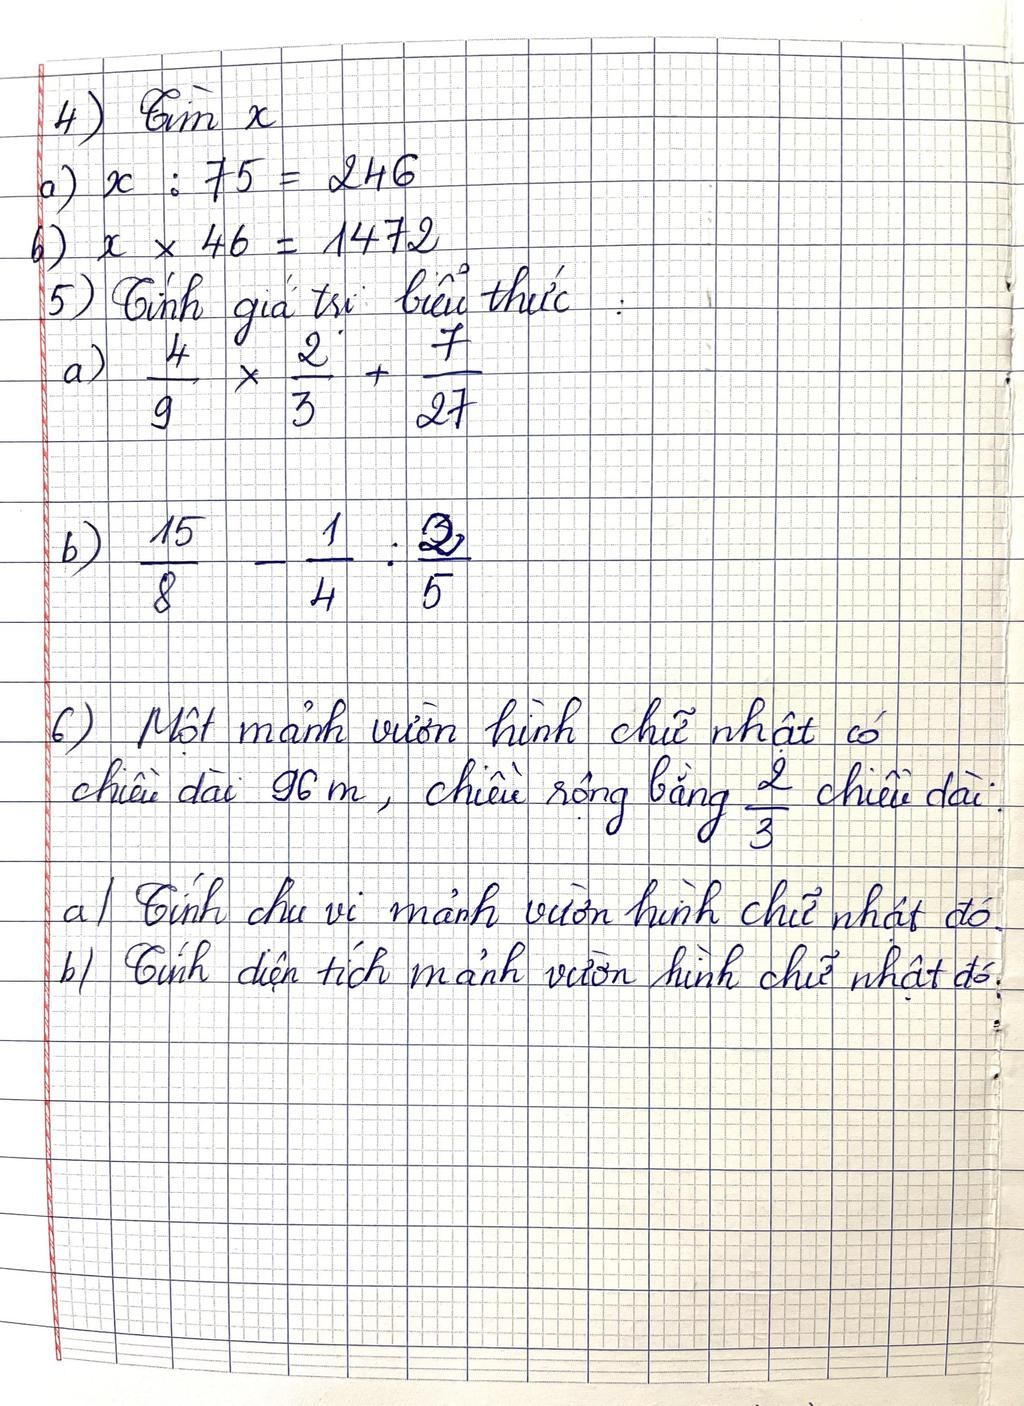 4) Tìm x
a) x : 75 = 246
b) x × 46 = 1472
5) Tính giá trị biểu thức :
a) 4/9 × 2/3 + 7/27
b) 15/8 - 1/4 : 2/5
6) Một mảnh vườn hình chữ nhật có
chiều dài 96 m, chiều rộng bằng 2/3 chiều dài.
a/ Tính chu vi mảnh vườn hình chữ nhật đó.
b/ Tính diện tích mảnh vườn hình chữ nhật đó.